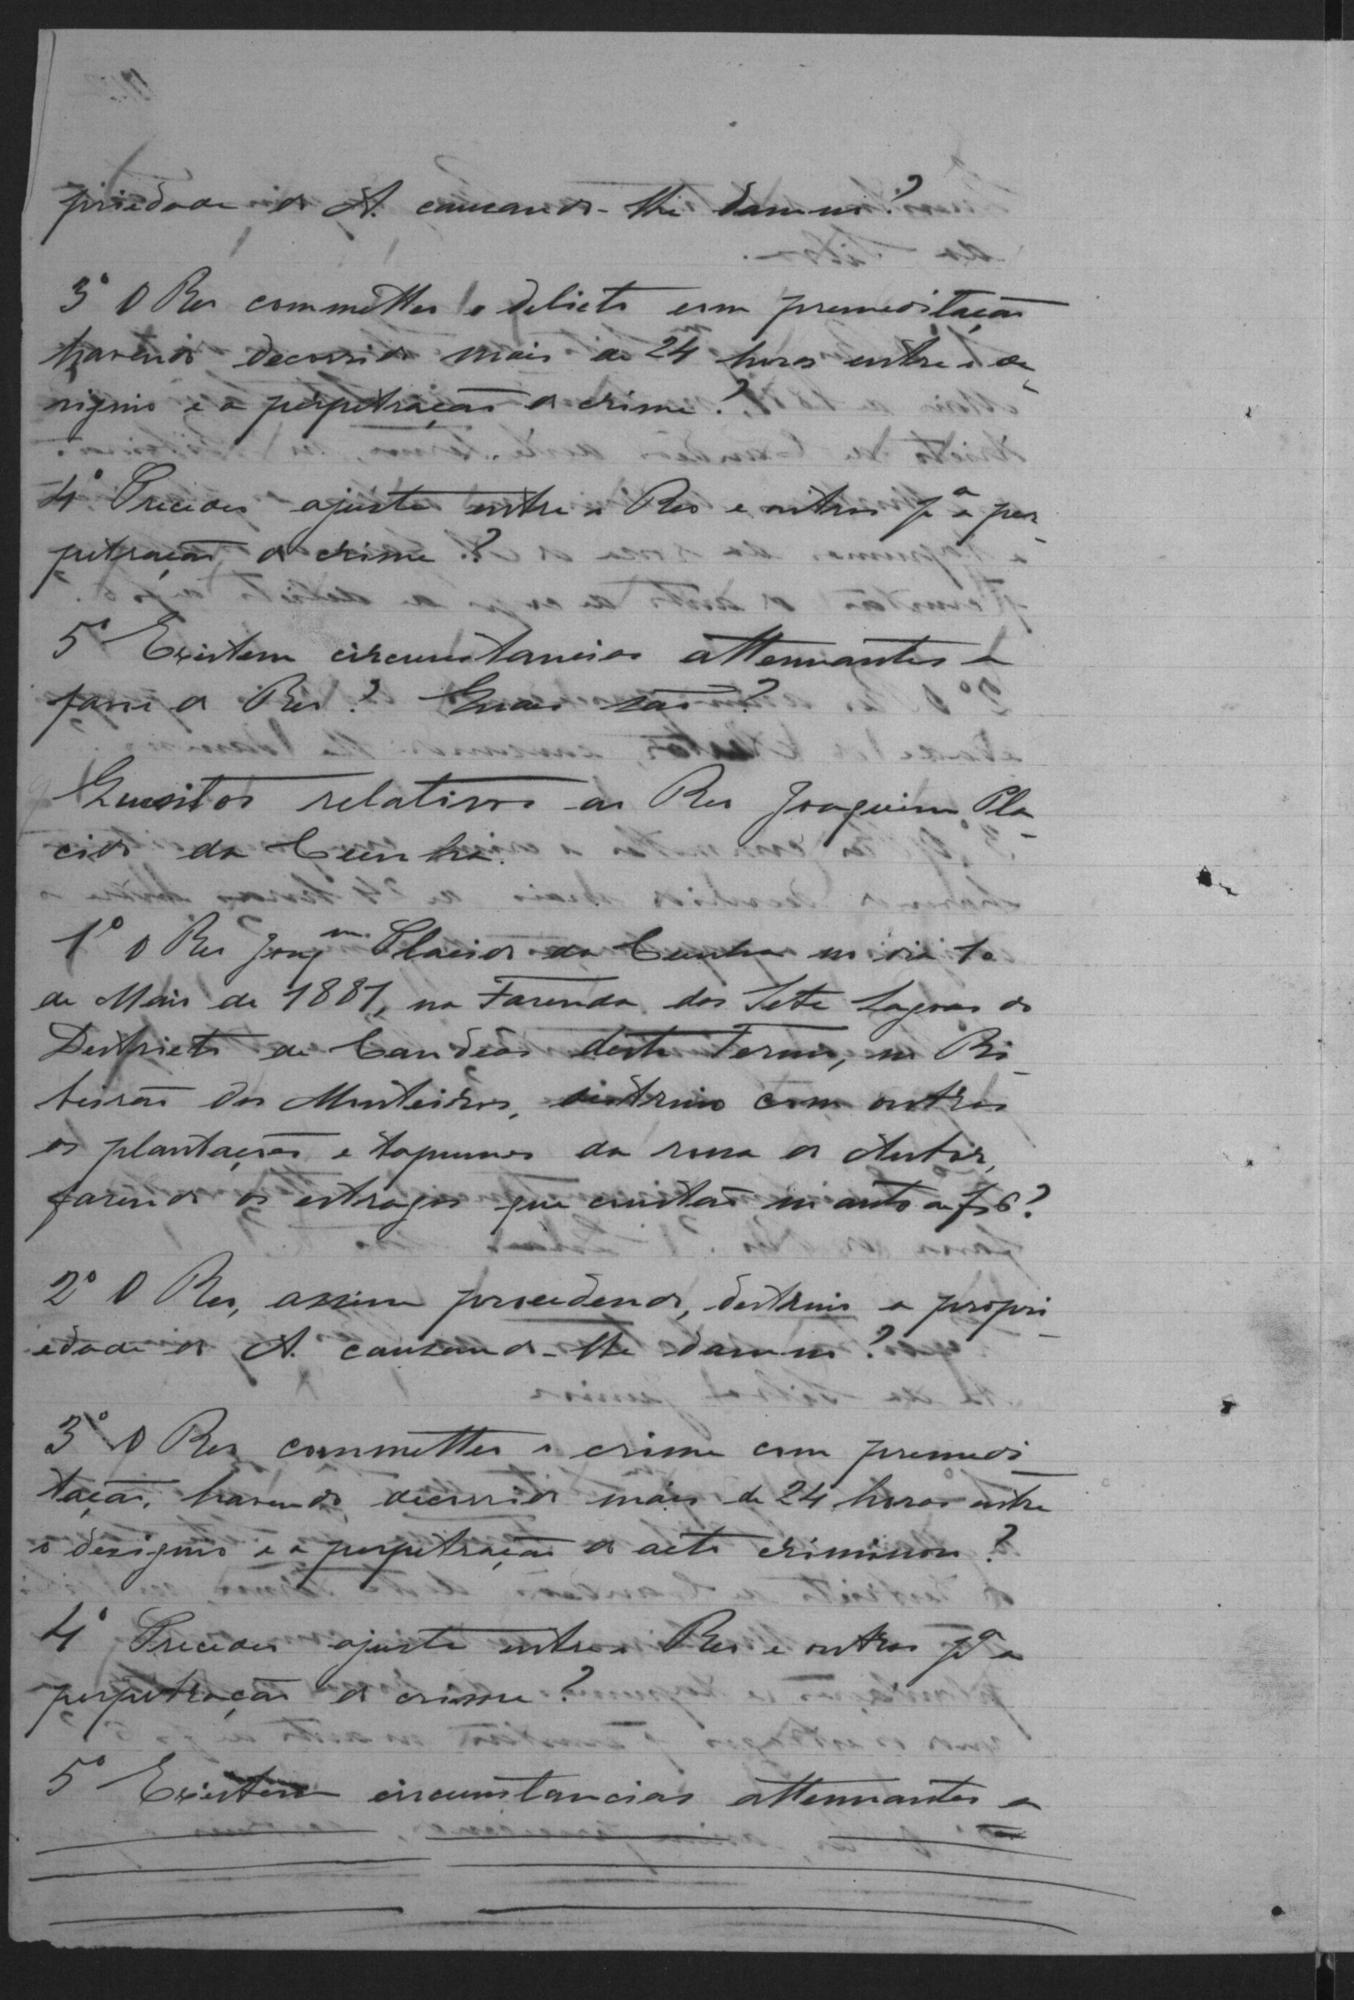 priedade do A. causando-lhe damno?
3º O Reo commetteo o delicto com premeditação
havendo decorrido mais de 24 horas entre o de-
signio e a perpetração do crime?
4º Precedeo ajuste entre o Reo e outros pª a per-
petração do crime?
5º Existem circumstancias attenuantes a
favor do Reo? Quaes são?
Quesitos relativos ao Reo Joaquim Pla-
cido da Cunha.
1º O Reo Joaqm Placido da Cunha no dia 1º
de Maio de 1881, na Fazenda das Sete Lagoas do
Districto de Candeas deste Termo, no Ri-
beirão dos Monteiros, distruio com outros
as plantações e tapumes da rossa do Autor,
fazendo os estragos que constão no auto a fs 6?
2º O Reo, assim procedendo, destruio a propri-
edade do A. causando-lhe damno?
3º O Reo commetteo o crime com premedi-
tação, havendo decorrido mais de 24 horas entre
o designio e a perpetração do acto criminoso?
4º Precedeo ajuste entre o Reo e outros pª a
perpetração do crime?
5º Existem circumstancias attenuantes a